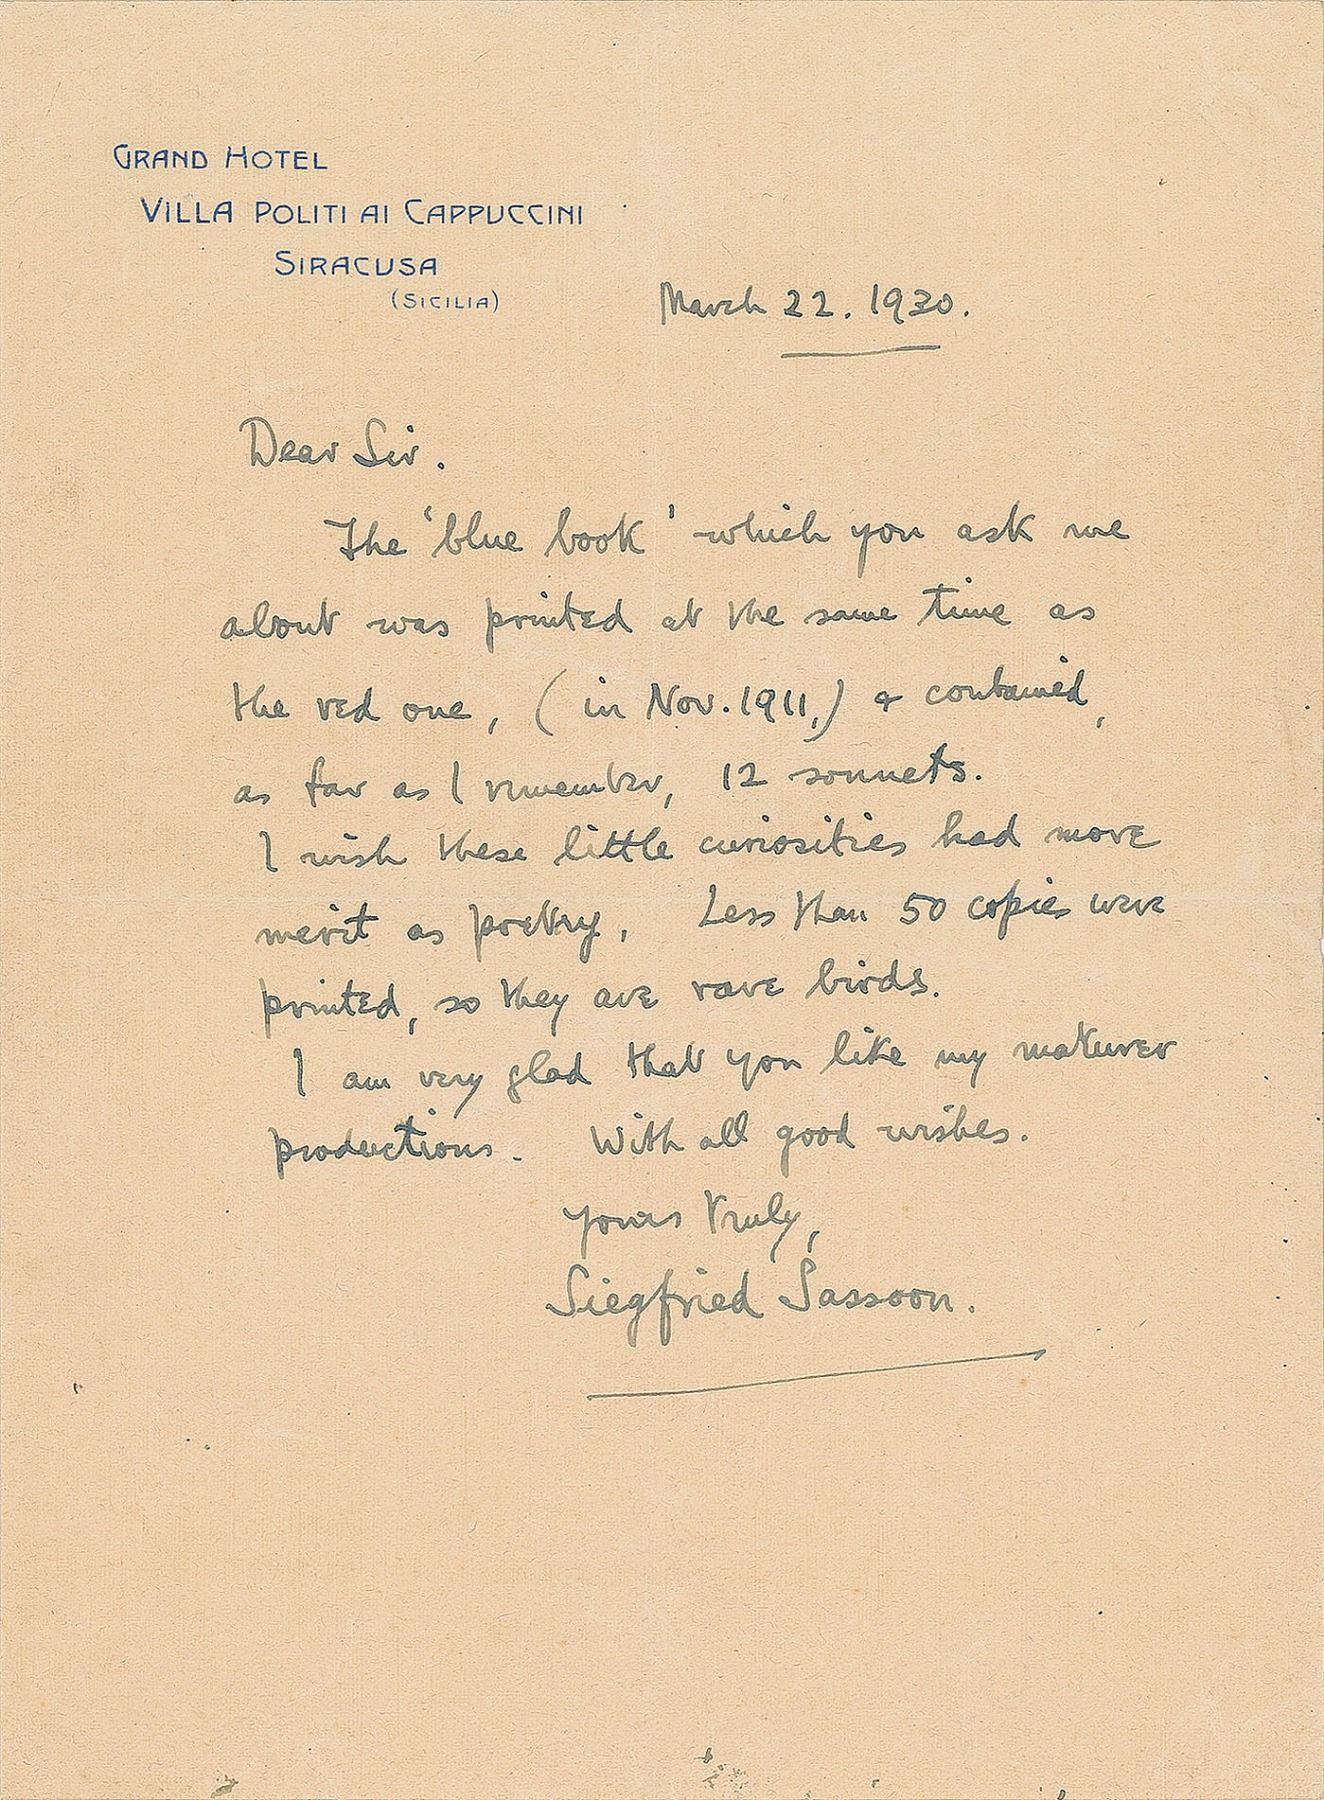 GRAND HOTEL
VILLA POLITI AI CAPPUCCINI
SIRACUSA
(SICILIA)
March 22. 1930.
Dear Sir.
The 'blue book' which you ask me
about was printed at the same time as
the red one, (in Nov. 1911,) & contained,
as far as I remember, 12 sonnets.
I wish these little curiosities had more
merit as poetry. Less than 50 copies were
printed, so they are rare birds.
I am very glad that you like my maturer
productions. With all good wishes.
Yours truly,
Siegfried Sassoon.